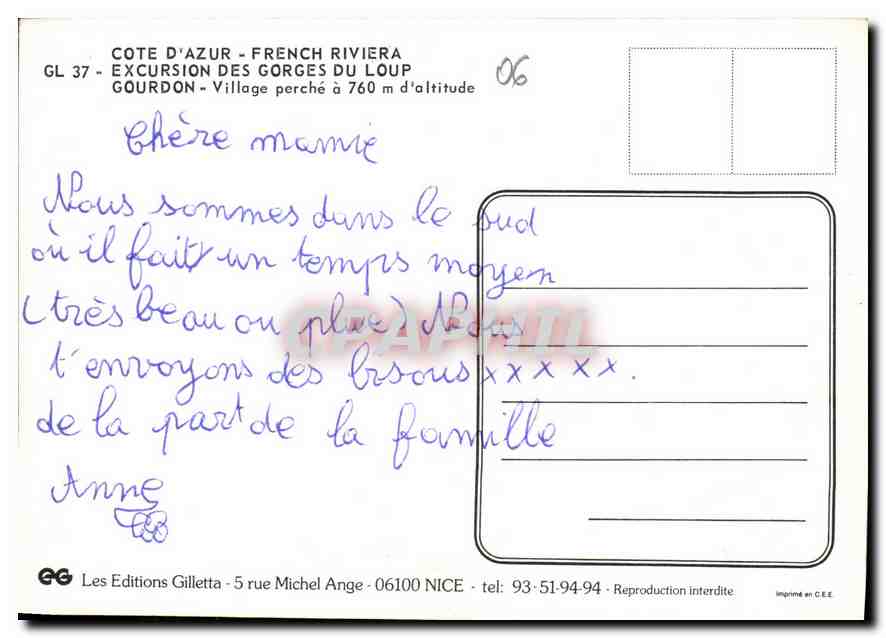 COTE D'AZUR - FRENCH RIVIERA
GL 37 - EXCURSION DES GORGES DU LOUP
GOURDON - Village perché à 760 m d'altitude
06
Chère mamie
Nous sommes dans le sud
où il fait un temps moyen
(très beau ou pluie) Nous
t'envoyons des bisous x x x x x.
de la part de la famille
Anne
CPAPHIL
GG Les Editions Gilletta - 5 rue Michel Ange - 06100 NICE - tel: 93-51-94-94 - Reproduction interdite
Imprimé en C.E.E.